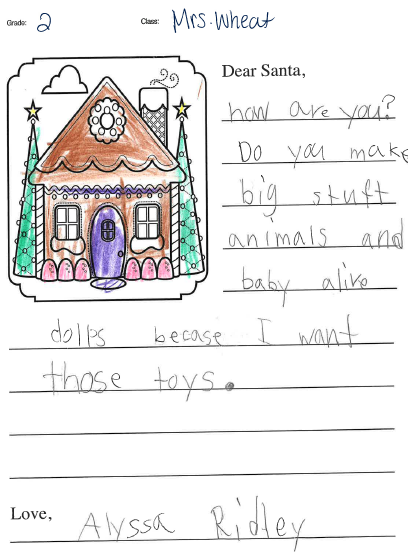 Grade: 2 Class: Mrs. Wheat
Dear Santa,
how are you?
Do you make
big stuft
animals and
baby alive
dolls becase I want
those toys.
Love, Alyssa Ridley